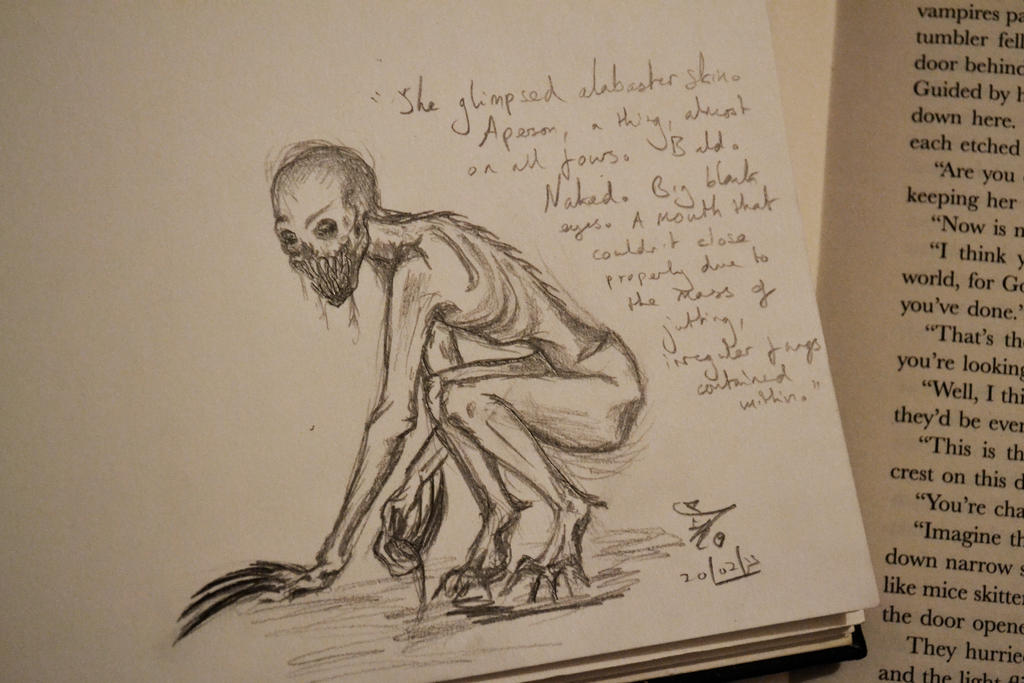 "She glimpsed alabaster skin.
A person, a thing, almost
on all fours. Bald.
Naked. Big blank
eyes. A mouth that
couldn't close
properly due to
the mass of
jutting,
irregular fangs
contained
within."
20/02/23
vampires pa
tumbler fell
door behind
Guided by h
down here.
each etched
"Are you
keeping her
"Now is n
"I think y
world, for Go
you've done.'
"That's the
you're looking
"Well, I thi
they'd be ever
"This is th
crest on this d
"You're cha
"Imagine th
down narrow s
like mice skitter
the door opene
They hurrie
and the light